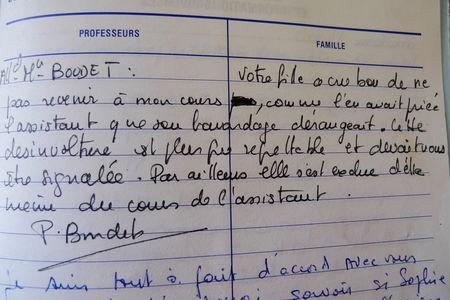 PROFESSEURS FAMILLE
All<sup>d</sup> M<sup>r</sup> BOUDET : Votre fille a cru bon de ne
pas revenir à mon cours, comme l'en avait priée
l'assistant que son bavardage dérangeait. Cette
désinvolture est plus que regrettable et devait vous
être signalée. Par ailleurs elle s'est exclue d'elle
même du cours de l'assistant
P. Boudet
Je suis tout à fait d'accord avec vous
savoir si Sophie